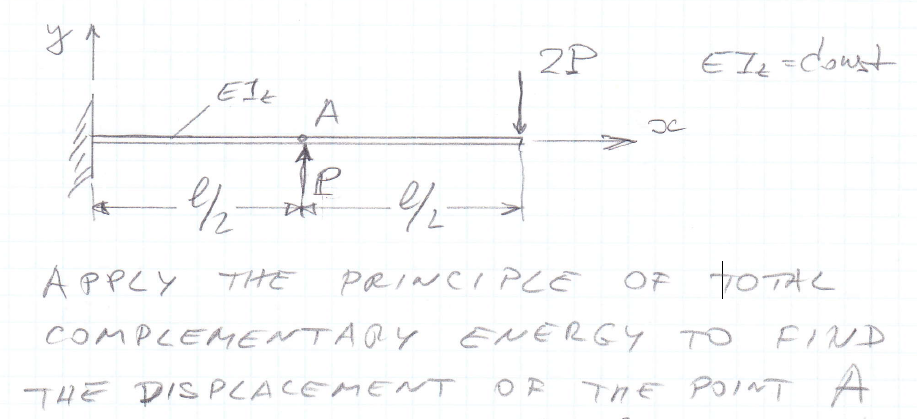 y
2P
EIz = const
EIz
A
x
P
l/2
l/2
APPLY THE PRINCIPLE OF TOTAL
COMPLEMENTARY ENERGY TO FIND
THE DISPLACEMENT OF THE POINT A